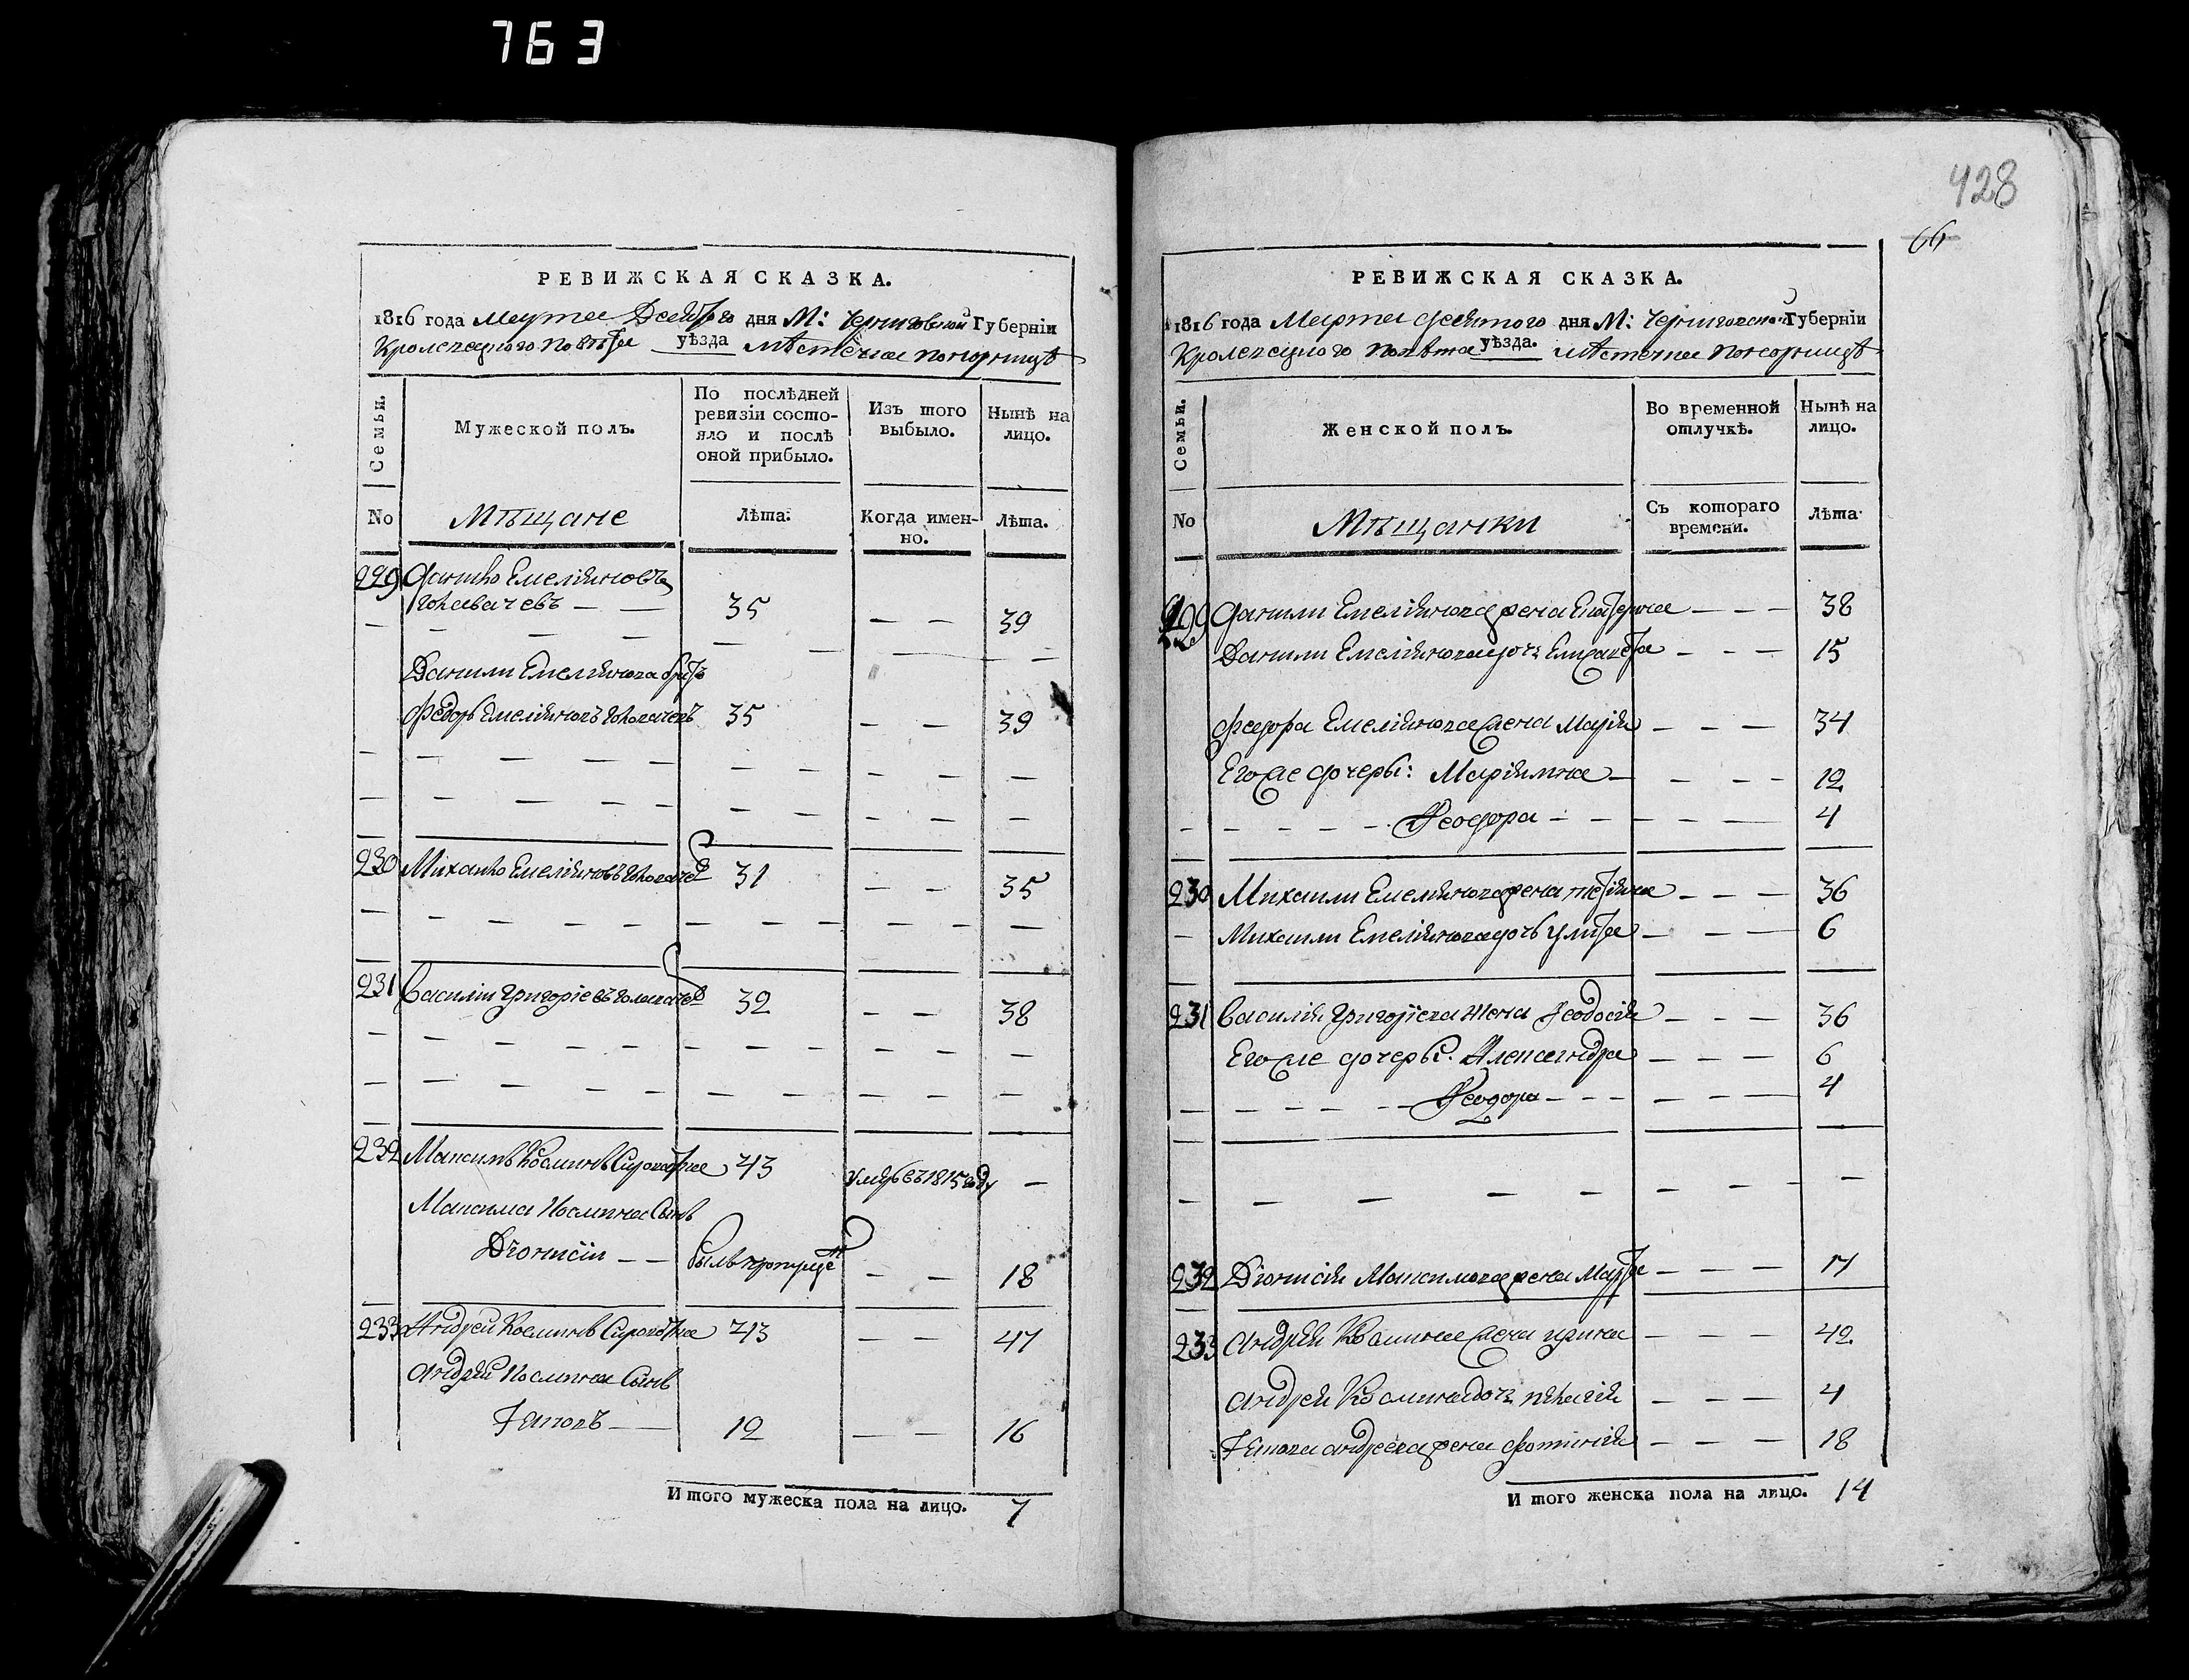 763
РЕВИЖСКАЯ СКАЗКА.
1816 года Марта Десятого дня М: Черниговской Губерніи
Кролевецкого Повѣта уѣзда мѣстечка Понорницѣ
Семьи.
Мужеской полъ.
По послѣдней
ревизіи состо-
яло и послѣ
оной прибыло.
Изъ того
выбыло.
Нынѣ на
лицо.
No
Мѣщане
Лѣта.
Когда имен-
но.
Лѣта.
229 Данило Емеліяновъ
35 — — 39
Данили Емеліянова братъ
Федоръ Емеліяновъ 35 — — 39
230 Михаило Емеліяновъ 31 — — 35
231 Василій Григоріевъ 32 — — 38
232 Максимъ Косминъ 43 умръ въ 1815 году —
Максима Космина Сынъ
Діонисій — — былъ пропущен — — 18
233 Андрей Косминъ 43 — — 47
Андрея Космина Сынъ
Яковъ — 12 — — 16
И того мужеска пола на лицо. 7
428
66
РЕВИЖСКАЯ СКАЗКА.
1816 года Марта десятого дня М: Черниговской Губерніи
Кролевецкого Повѣта уѣзда. мѣстечка Понорницѣ
Семьи.
Женской полъ.
Во временной
отлучкѣ.
Нынѣ на
лицо.
No
Мѣщанки
Съ котораго
времени.
Лѣта
229 Данили Емеліянова жена Екатерина — — — 38
Данили Емеліянова дочъ Елисавета — — — 15
Федора Емеліянова жена Марія — — — 34
Егоже дочери: Маріямна — — — — 12
Феодора — — — — — 4
230 Михаили Емеліянова жена Татіяна — — — 36
Михаили Емеліянова дочь Улита — — — 6
231 Василія Григоріева жена Феодосія — — — 36
Егоже дочери: Александра — — — 6
Феодора — — — — — — 4
232 Діонисія Максимова жена Марфа — — — 17
233 Андрея Космина жена Ирина — — — 42
Андрея Космина дочъ — — — 4
Якова Андреева жена — — — 18
И того женска пола на лицо. 14